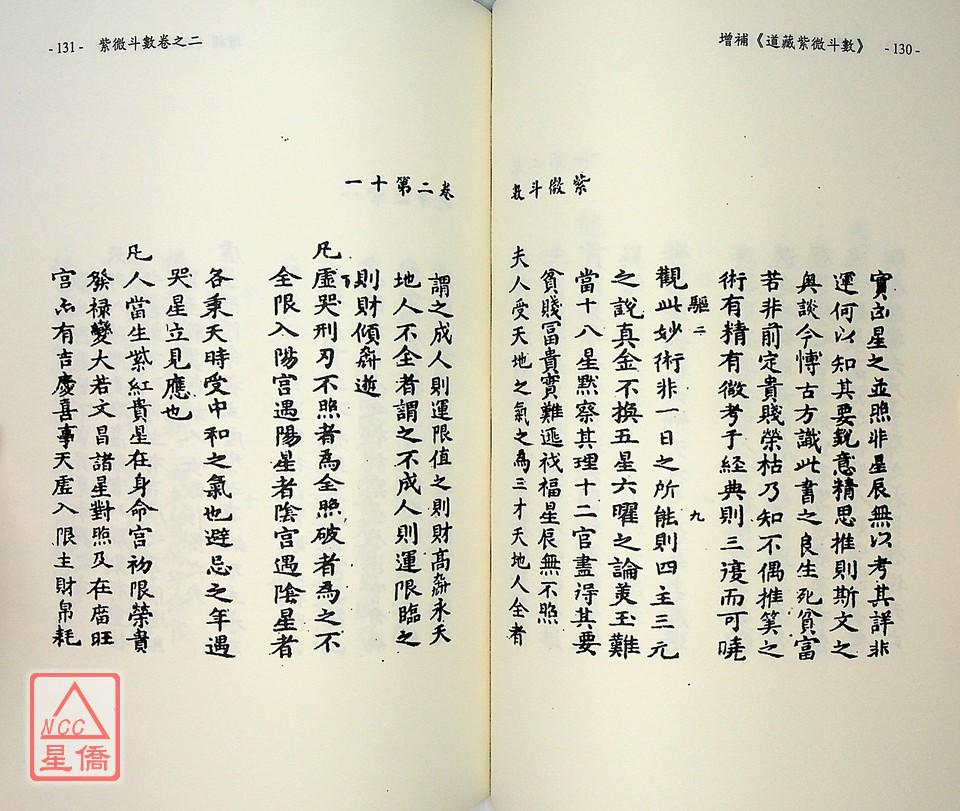 增補《道藏紫微斗數》 -130-
紫微斗數
實凶星之並照非星辰無以考其詳非
運何以知其要銳意精思推則斯文之
奧談今博古方識此書之良生死貧富
若非前定貴賤榮枯乃知不偶推算之
術有精有微考于經典則三復而可曉
驅二 九
觀此妙術非一日之所能則四主三元
之說真金不換五星六曜之論美玉難
當十八星黙察其理十二官盡得其要
貧賤冨貴實難逃福星辰無不照
夫人受天地之氣之為三才天地人全者
-131- 紫微斗數卷之二
卷二第十一
謂之成人則運限值之則財高永天
地人不全者謂之不成人則運限臨之
則財傾逝
凡虛哭刑刃不照者為全照破者為之不
全限入陽宮遇陽星者陰宮遇陰星者
各秉天時受中和之氣也避忌之年遇
哭星立見應也
凡人當生紫紅貴星在身命宮初限榮貴
發祿變大若文昌諸星對照及在廟旺
宮亦有吉慶喜事天虛入限主財帛耗
NCC
星僑